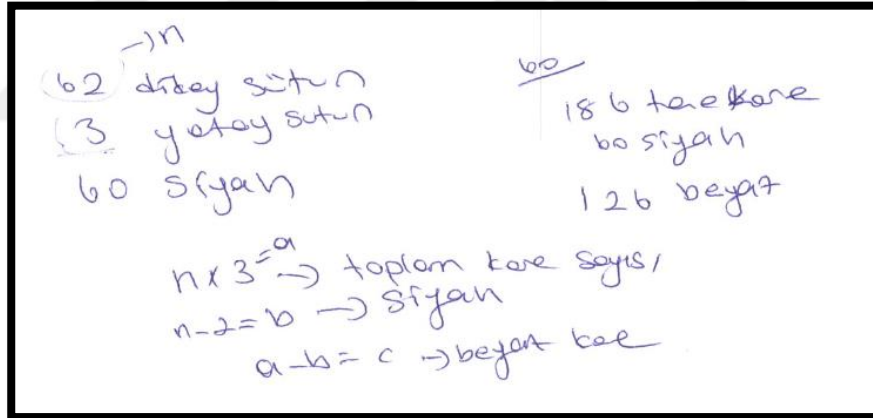 →n
62 dikey sütun
3 yatay sutun
60 siyah
60
186 tane kare
60 siyah
126 beyaz
n x 3 = a → toplam kare sayısı
n-2 = b → siyah
a-b = c → beyaz kare